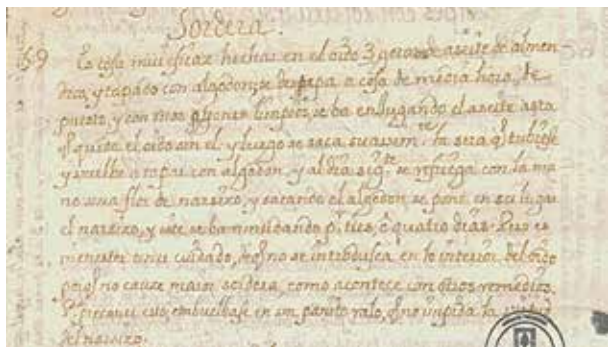 Sordera.
159 Es cosa mui eficaz hechar en el oido 3 gotas de azeite de almen-
dras, y tapado con algodon; se destapa a cosa de media hora, de
puesto, y con unos algodones limpios, se ba enjugando el azeite asta
q̃ quede el oido sin el y luego se saca suavem.te la sera q̃ tubiese
y vuelbe a tapar con algodon y al dia sig.te se refriega con la ma
no una flor de narsizo, y sacando el algodon se pone en su lugar
el narsizo, y este se ba mudando p.r tres, ô quatro dias. Pero es
menester tener cuidado, de q̃ no se introdusca en lo interior del oido
por q̃ no cauze maior sordera, como acontece con otros remedios.
embuelbase en un pañito ralo, q̃ no inpida la
del narsizo.